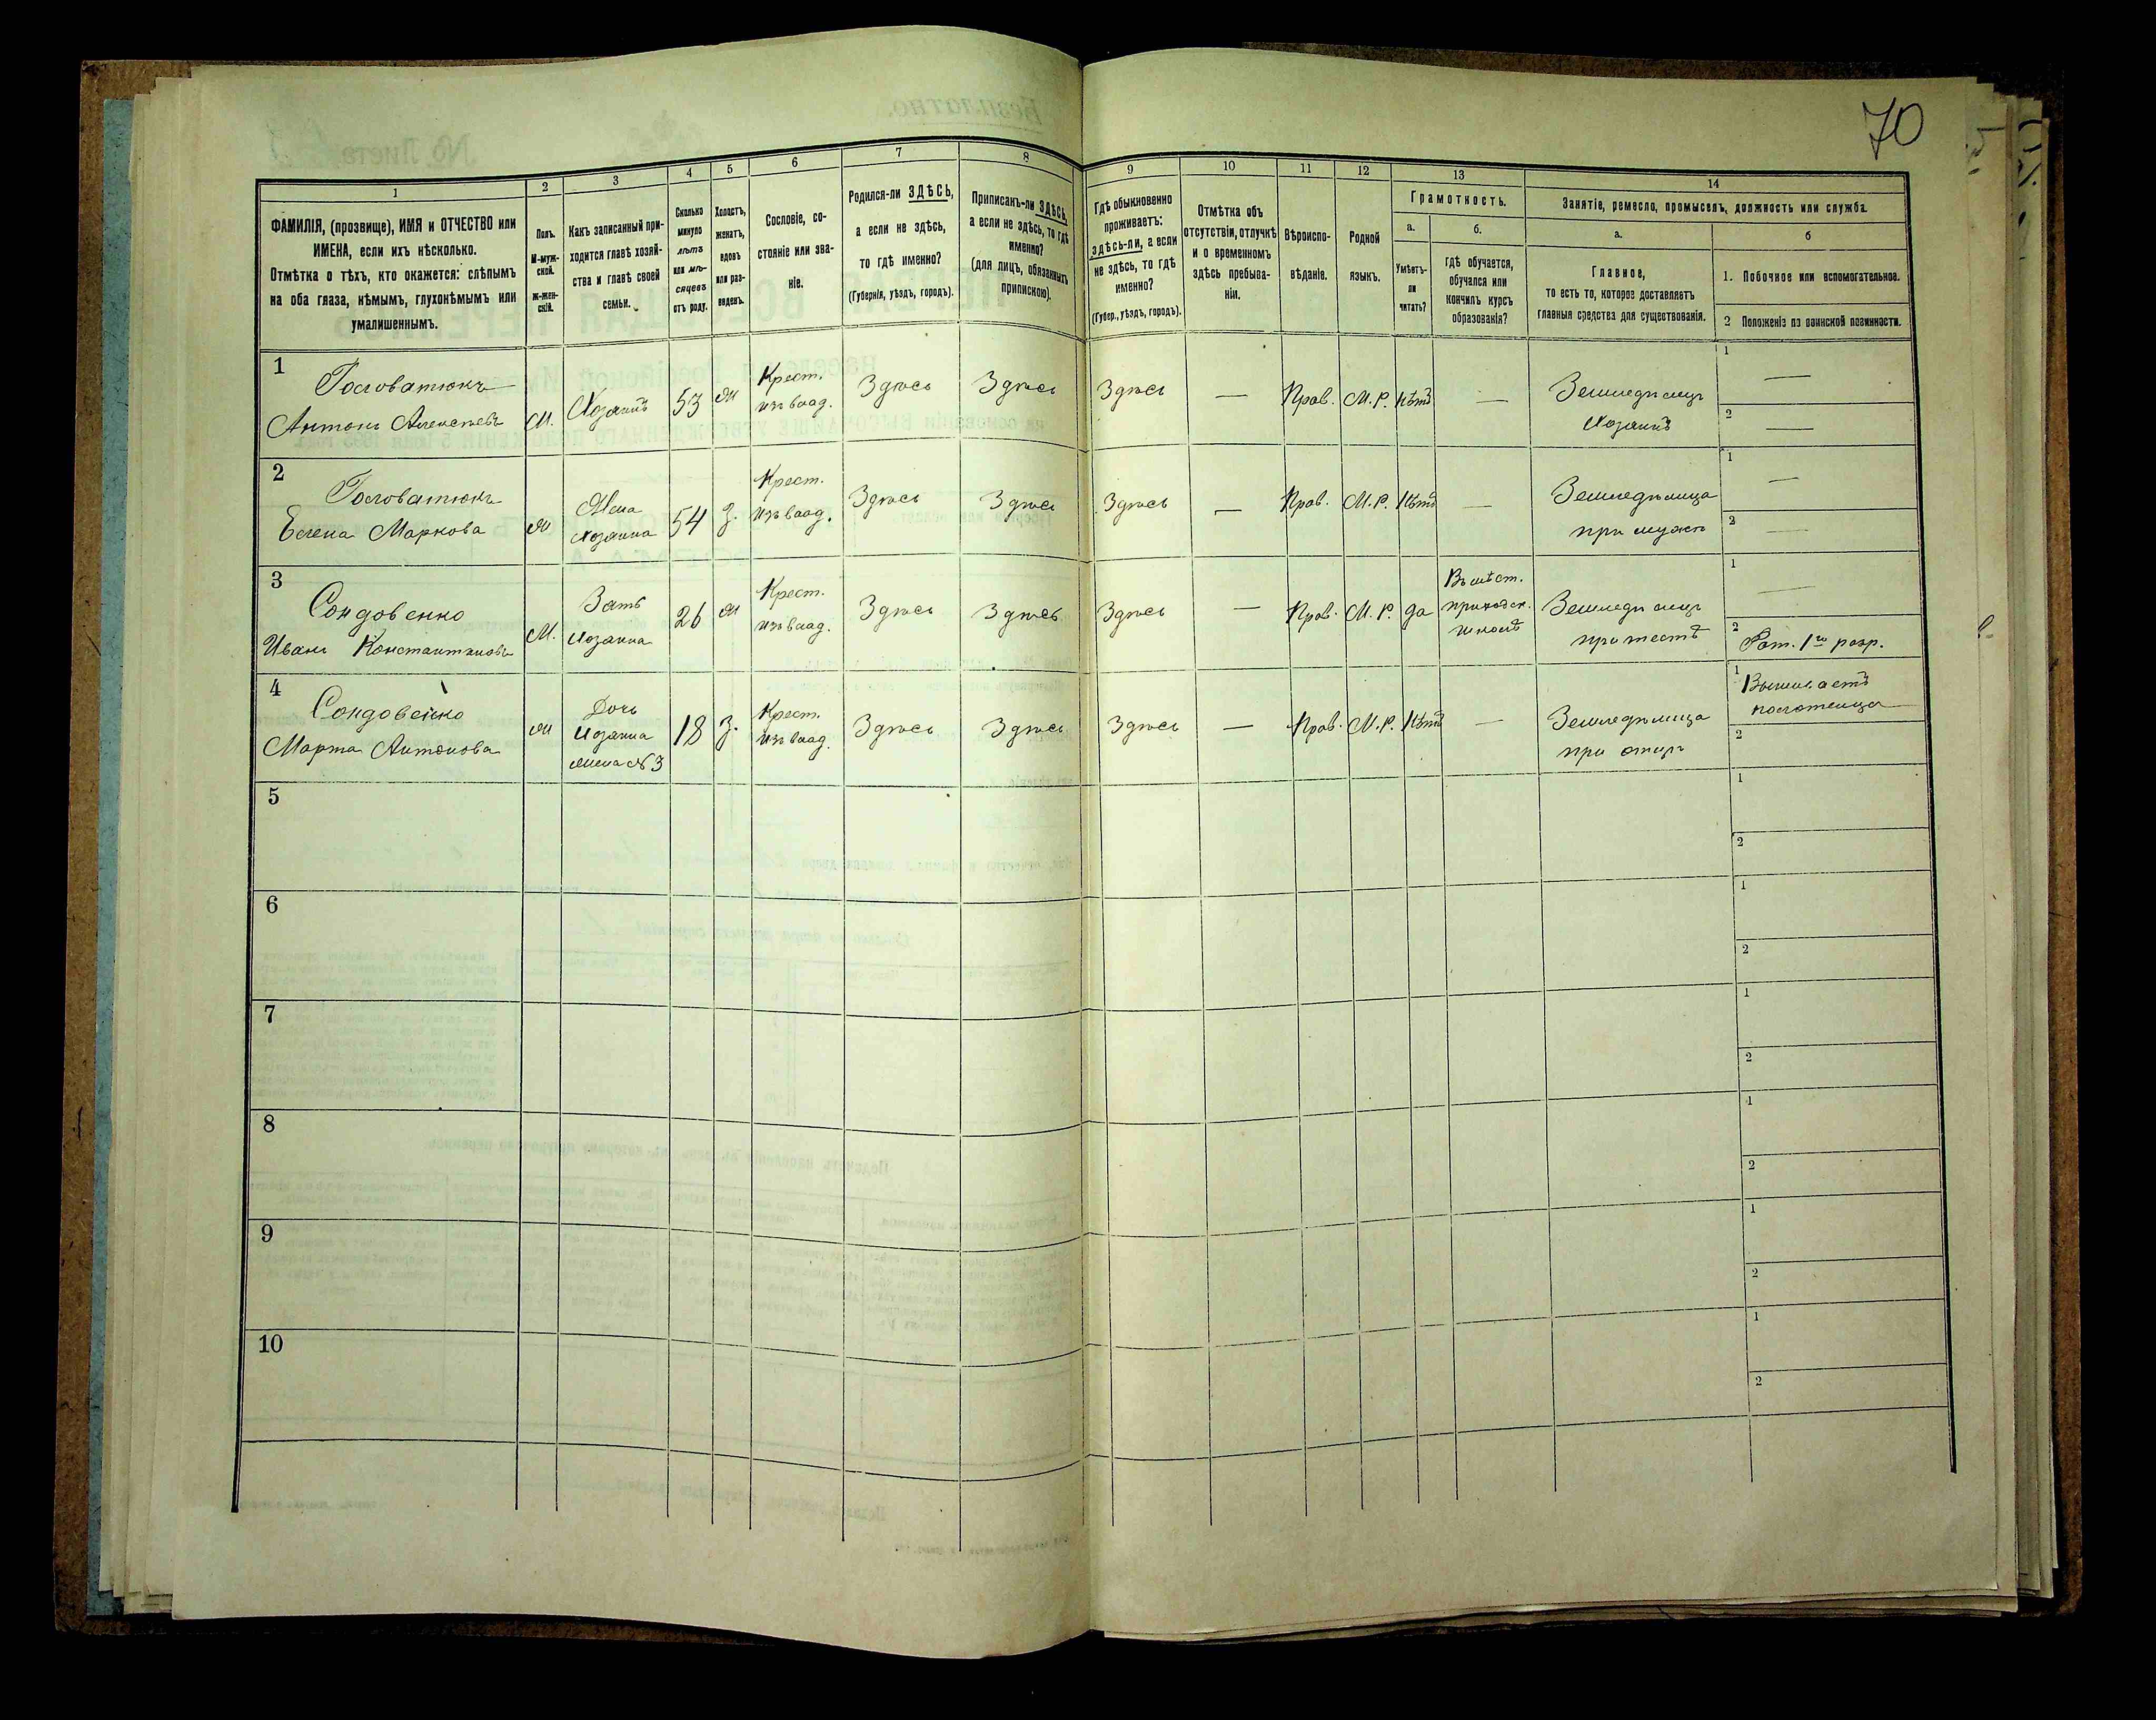 70
1
2
3
4
5
6
7
8
9
10
11
12
13
14
ФАМИЛІЯ, (прозвище), ИМЯ и ОТЧЕСТВО или
ИМЕНА, если ихъ нѣсколько.
Отмѣтка о тѣхъ, кто окажется: слѣпымъ
на оба глаза, нѣмымъ, глухонѣмымъ или
умалишеннымъ.
Полъ.
М-муж-
ской.
Ж-жен-
скій.
Какъ записанный при-
ходится главѣ хозяй-
ства и главѣ своей
семьи.
Сколько
минуло
лѣтъ
или мѣ-
сяцевъ
отъ роду.
Холостъ,
женатъ,
вдовъ
или раз-
веденъ.
Сословіе, со-
стояніе или зва-
ніе.
Родился-ли ЗДѢСЬ,
а если не здѣсь,
то гдѣ именно?
(Губернія, уѣздъ, городъ).
Приписанъ-ли ЗДѢСЬ,
а если не здѣсь, то гдѣ
именно?
(для лицъ, обязанныхъ
припискою).
Гдѣ обыкновенно
проживаетъ:
здѣсь-ли, а если
не здѣсь, то гдѣ
именно?
(Губер., уѣздъ, городъ).
Отмѣтка объ
отсутствіи, отлучкѣ
и о временномъ
здѣсь пребыва-
ніи.
Вѣроиспо-
вѣданіе.
Родной
языкъ.
Грамотность.
а.
Умѣетъ-
ли
читать?
б.
гдѣ обучается,
обучался или
кончилъ курсъ
образованія?
Занятіе, ремесло, промыселъ, должность или служба.
а.
Главное,
то есть то, которое доставляетъ
главныя средства для существованія.
б
1. Побочное или вспомогательное.
2 Положеніе по воинской повинности.
1
Головатюкъ
Антонъ Алексѣевъ
М.
Хозяинъ
53
Ж
Крест.
изъ влад.
Здѣсь
Здѣсь
Здѣсь
—
Прав.
М.Р.
Нѣтъ
—
Земледѣлецъ
Хозяинъ
1
—
2
—
2
Головатюкъ
Елена Маркова
Ж
Жена
хозяина
54
З.
Крест.
изъ влад.
Здѣсь
Здѣсь
Здѣсь
—
Прав.
М.Р.
Нѣтъ
—
Земледѣлица
при мужѣ
1
—
2
—
3
Сондовенко
Иванъ Константиновъ
М.
Зять
хозяина
26
Ж
Крест.
изъ влад.
Здѣсь
Здѣсь
Здѣсь
—
Прав.
М.Р.
да
Въ мѣст.
приходск.
школѣ
Земледѣлецъ
при тестѣ
1
—
2
Рат. 1го разр.
4
Сондовенко
Марта Антонова
Ж
Дочь
хозяина
жена №3
18
З.
Крест.
изъ влад.
Здѣсь
Здѣсь
Здѣсь
—
Прав.
М.Р.
Нѣтъ
—
Земледѣлица
при отцѣ
1
Вышиваетъ
полотенца
2
5
1
2
6
1
2
7
1
2
8
1
2
9
1
2
10
1
2